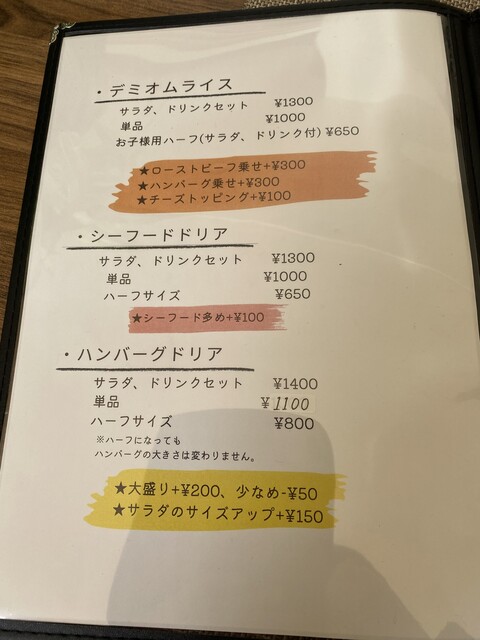 ・デミオムライス
サラダ、ドリンクセット ¥1300
単品 ¥1000
お子様用ハーフ(サラダ、ドリンク付) ¥650
★ローストビーフ乗せ+¥300
★ハンバーグ乗せ+¥300
★チーズトッピング+¥100
・シーフードドリア
サラダ、ドリンクセット ¥1300
単品 ¥1000
ハーフサイズ ¥650
★シーフード多め+¥100
・ハンバーグドリア
サラダ、ドリンクセット ¥1400
単品 ¥1100
ハーフサイズ ¥800
※ハーフになっても
ハンバーグの大きさは変わりません。
★大盛り+¥200、少なめ-¥50
★サラダのサイズアップ+¥150